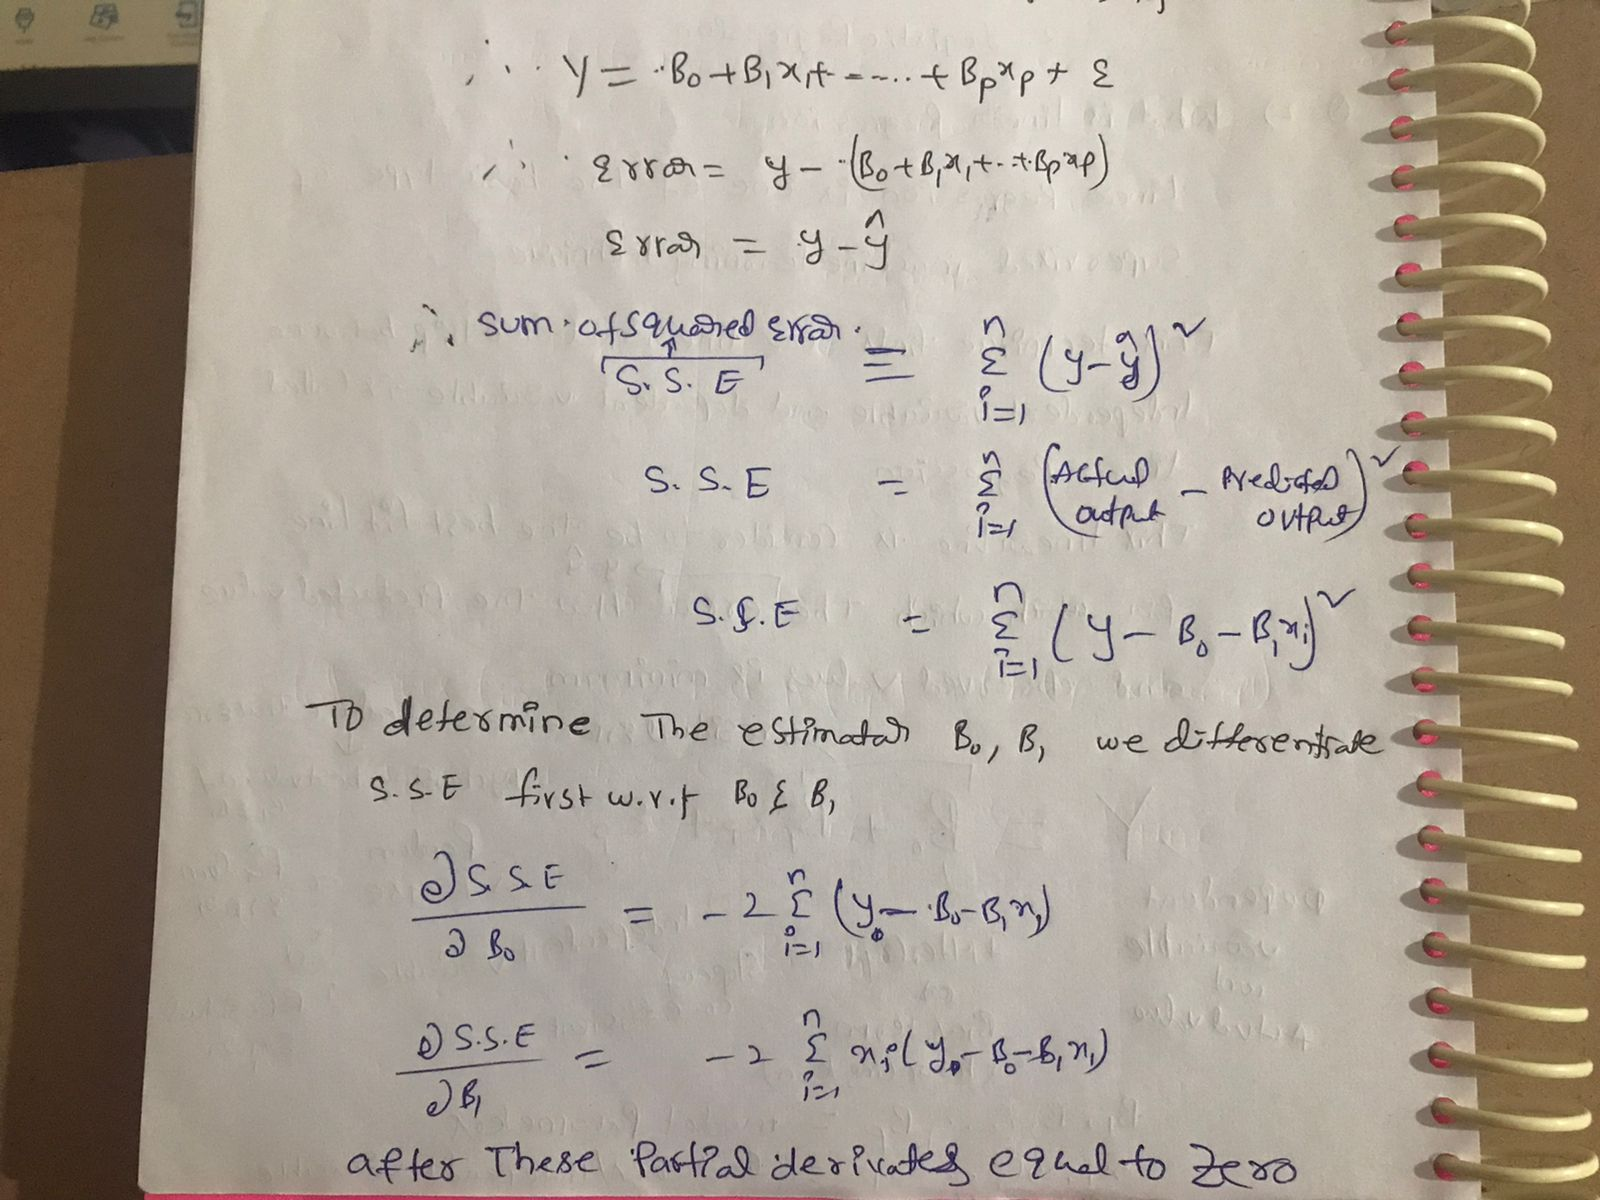 ∴ Y = B₀ + B₁x₁ + ----.. + Bₚxₚ + ε
∴ Error = y - (B₀ + B₁x₁ + .. + Bₚxₚ)
Error = y - ŷ
∴ sum of squared Error = Σⁿᵢ₌₁ (y - ŷ)²
S. S. E
S. S. E = Σⁿᵢ₌₁ (Actual output - Predicted output)²
S. S. E = Σⁿᵢ₌₁ (y - B₀ - B₁xᵢ)²
To determine The estimator B₀, B₁ we differentiate
S.S.E first w.r.t B₀ & B₁
∂S.S.E / ∂B₀ = -2 Σⁿᵢ₌₁ (yᵢ - B₀ - B₁xᵢ)
∂S.S.E / ∂B₁ = -2 Σⁿᵢ₌₁ xᵢ (yᵢ - B₀ - B₁xᵢ)
after These Partial derivates equal to zero